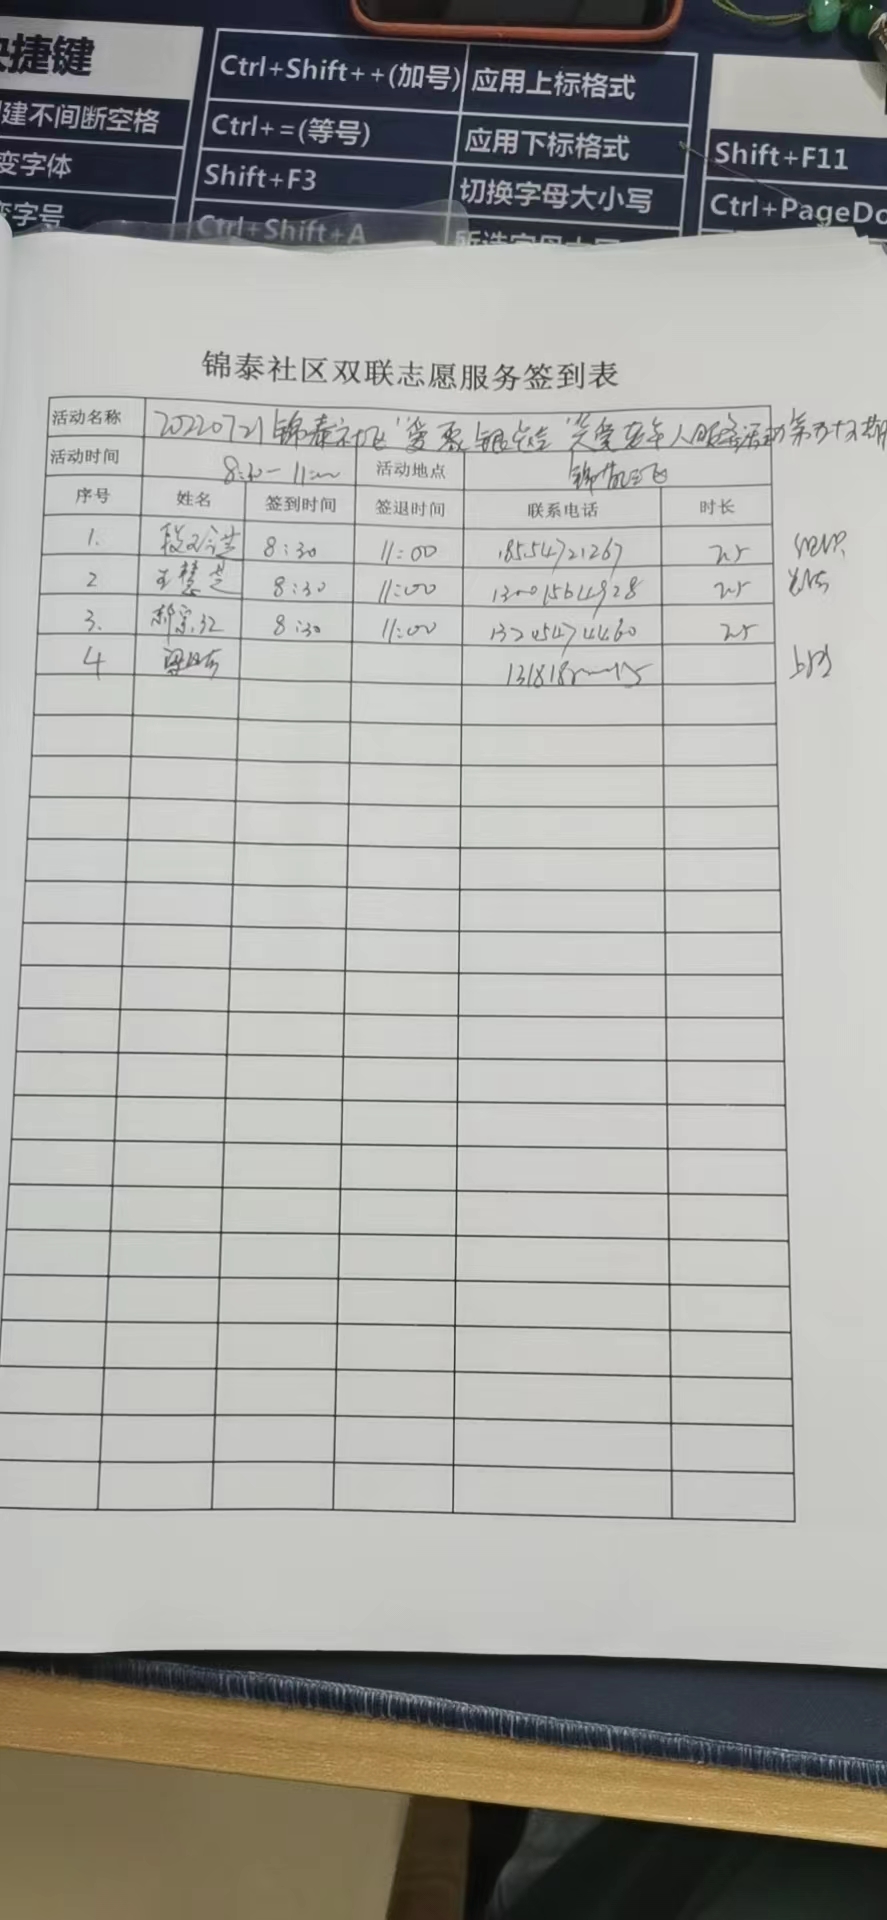 快捷键
建不间断空格
变字体
变字号
Ctrl+Shift++(加号) 应用上标格式
Ctrl+=(等号) 应用下标格式
Shift+F3 切换字母大小写
Ctrl+Shift+A
Shift+F11
Ctrl+PageDo
锦泰社区双联志愿服务签到表
活动名称 20220721锦泰社区"爱聚银龄"关爱老年人服务活动第五十
活动时间 8:30-11:00 活动地点 锦泰社区
序号 姓名 签到时间 签退时间 联系电话 时长
1. 8:30 11:00 18554721267 2.5
2 王慧芝 8:30 11:00 13001564928 2.5
3. 郝宗红 8:30 11:00 13245474460 2.5
4